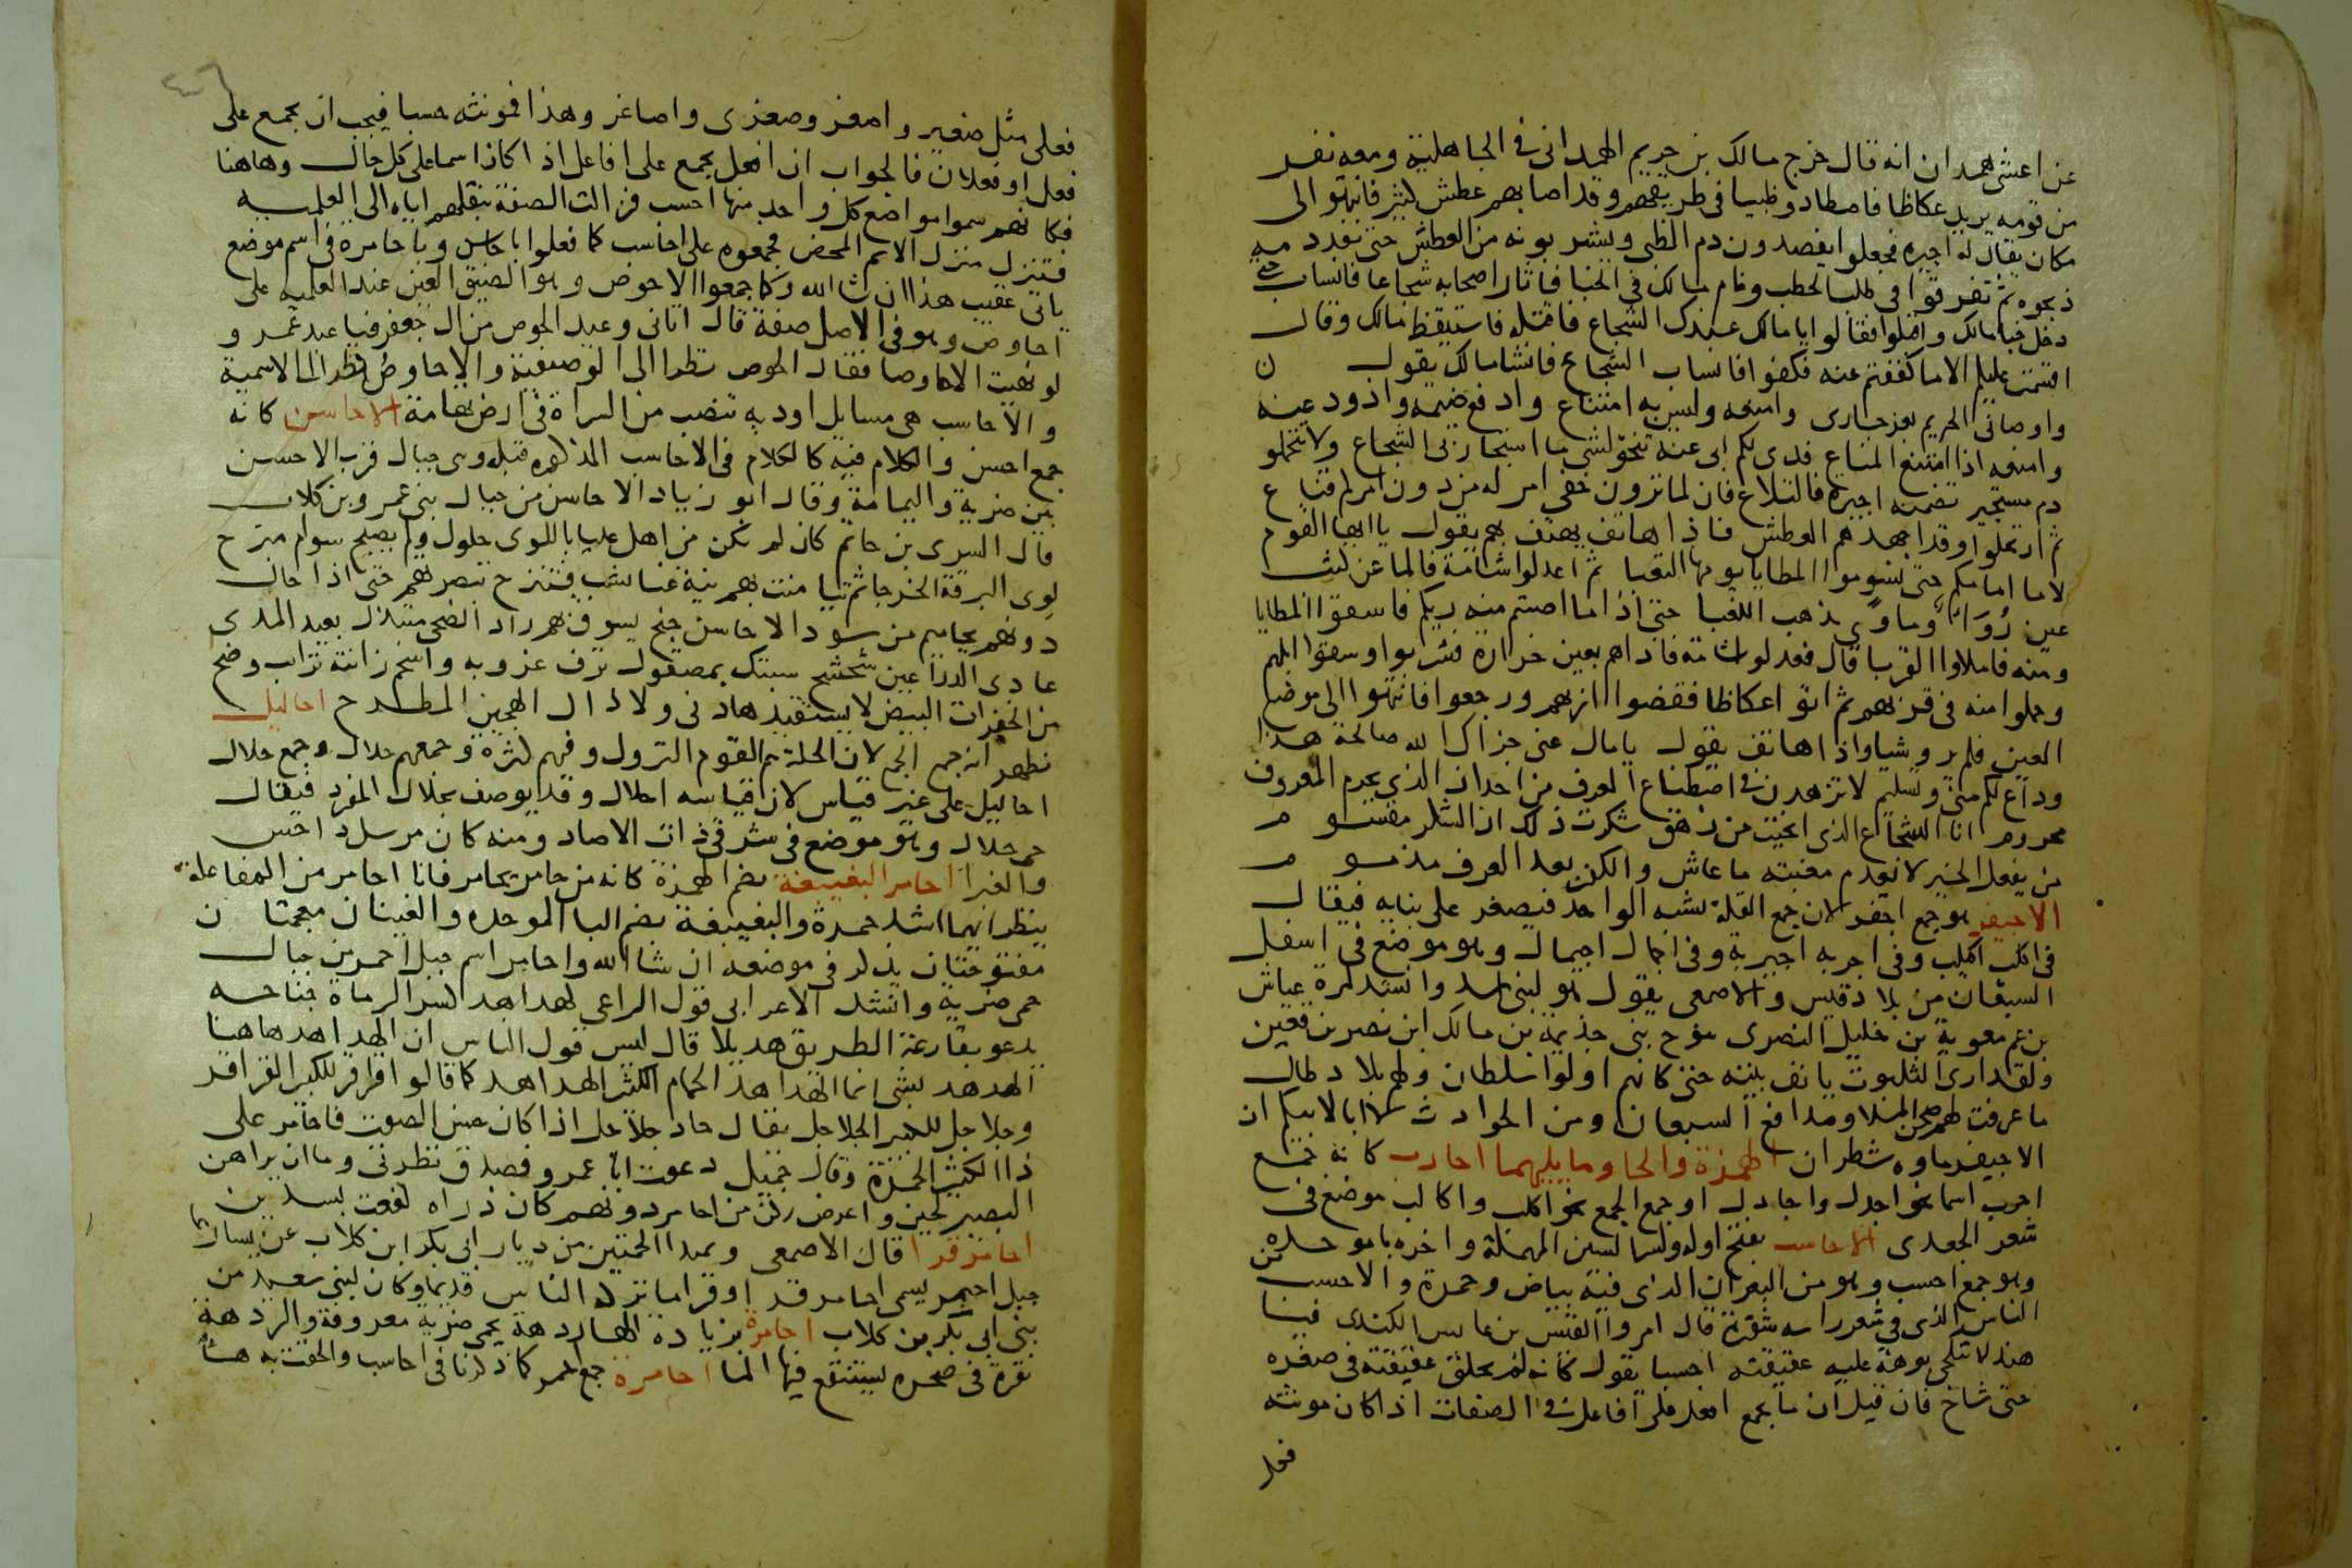 عن اعشى همدان انه قال خرج مالك بن حريم الهمدانى فى الجاهلية ومعه نفر
من قومه يريد عكاظا فاصطادو ظبيا فى طريقهم وقد اصابهم عطش كثير فانتهو الى
مكان يقال له اجيره فجعلوا يفصدون دم الظبى ويشربونه من العطش حتى نفد دمه
ذبحوه ثم تفرقوا فى طلب الحطب ونام مالك فى الخبا فاثار اصحابه شجاعا فانساب حتى
دخل خبا مالك واقبلوا فقالوا يا مالك عندك الشجاع فاقتله فاستيقظ مالك وقال
اقسمت عليكم الا ما كففتم عنه فكفوا فانساب الشجاع فانشا مالك يقول ن
واوصانى الحريم بعز جارى وامنعه وليس به امتناع وادفع ضيمه واذود عنه
وامنعه اذا امتنع المناع فدى لكم ابى عنه تنحو لشى ما استجارنى الشجاع ولا تتحملو
دم مستجير تضمنه اجيرة فالتلاع فان لما ترون خفى امر له من دون امركم قناع
ثم ارتحلوا وقد اجهدهم العطش فاذا هاتف يهتف بهم يقول يا ايها القوم
لا ما امامكم حتى تسوموا المطايا يومها التعبا ثم اعدلوا شامة فالما عن كثب
عين رُوَآءٌ وماءٌ يذهب اللغبا حتى اذا ما اصبتم منه ريكم فاسقوا المطايا
ومنه فاملاوا القربا قال فعدلو شامه فاذاهم بعين خرارة فشربوا وسقوا ابلهم
وحملوا منه فى قربهم ثم اتو اعكاظا فقضوا اربهم ورجعوا فانتهوا الى موضع
العين فلم يرو شيا واذا هاتف يقول يا مال عنى جزاك الله صالحة هذا
وداع لكم منى وتسليم لا تزهدن فى اصطناع العرف من احد ان الذى يحرم المعروف
محروم انا الشجاع الذى انجيت من رهق شكرت ذلك ان الشكر مقسوم
من يفعل الخير لا يعدم مغبته ما عاش والكفر بعد العرف مذموم
الاحيفر هو جمع احفر لان جمع القلة يشبه الواحد فيصغر على بنايه فيقال
فى اكلب اكيلب وفى اجربه اجيربة وفى اجمال اجيمال وهو موضع فى اسفل
السبعان من بلاد قيس والاصمعى يقول هو لبنى اسد وانشد لمرة عياش
بن عم معوية بن خليل النصرى ينوح بنى جذيمة بن مالك ابن نصر بن قعين
ولقد ارى الثلبوت يا نف بينه حتى كانهم اولوا سلطان ولهم بلاد طال
ما عرفت لهم صحن الملا ومدافع السبعان ومن الحوادث لا ابا لابيكم ان
الاجيفر ماوه شطران الهمزة والحا وما يليهما احارب كانه جمع
احرب اسما نحو اجدل واجادل او جمع الجمع نحو اكلب واكالب موضع فى
شعر الجعدى الاحاسب بفتح اوله وكسر السين المهملة واخره با موحده
وهو جمع احسب وهو من البعران الذى فيه بياض وحمرة والاحسب من
الناس الذى فى شعر راسه شقرة قال امروا القيس بن عابس الكندى فيا
هند لا تنكحى بوهة عليه عقيقته احسبا يقول كانه لم يحلق عقيقته فى صغره
حتى شاخ فان قيل ان ما يجمع افعل على افاعل فى الصفات اذا كان مونثه
فعلى
فعلى مثل صغير واصغر وصغرى واصاغر وهذا فمونثه حسبا فيجب ان يجمع على
فعل او فعلان فالجواب ان افعل يجمع على افاعل اذا كان اسما على كل حال وهاهنا
فكانهم سموا مواضع كل واحد منها احسب فزالت الصفة بنقلهم اياه الى العلميه
فتنزل منزل الاسم المحض فجمعوه على احاسب كما فعلوا باحاسن وباحامرة فى اسم موضع
ياتى عقيب هذا ان شا الله وكما جمعوا الاحوص وهو الضيق العين عند العلميه على
احاوص وهو فى الاصل صفة قال اتانى وعيد الحوص من ال جعفر فيا عبد عمرو
لو نهيت الاحاوصا فقال الحوص نظرا الى الوصفية والاحاوص نظرا الى الاسمية
والاحاسب هى مسايل اوديه تنصب من السراة فى ارض تهامة الاحاسن كانه
جمع احسن والكلام فيه كالكلام فى الاحاسب المذكوره قبله وهى جبال قرب الاحسن
بين ضرية واليمامة وقال ابو زياد الاحاسن من جبال بنى عمرو بن كلاب
قال السرى بن حاتم كان لم يكن من اهل عليا باللوى حلول ولم يصبح سوام مبرح
لوى البرقة الخرجا ثم تيامنت بهم نية عنا تشب فتنزح تبصرتهم حتى اذا حال
دونهم يحاميم من سود الاحاسن جنح يسوق بهم راد الضحى متبذل بعيد المدى
عادى الذراعين شحشح سبتك بمصقول ترف غروبه واسحم زانته ترايب وضح
من الخفرات البيض لا يستفيدها دنى ولا ذاك الهجين المطرح احاليل
يظهر انه جمع الجمع لان الحلة هم القوم النزول وفيهم كثرة وجمعهم حلال وجمع حلال
احاليل على غير قياس لان قياسه احلال وقد يوصف بحلال المفرد فيقال
حى حلال وهو موضع فى شرقى ذات الاصاد ومنه كان مرسل داحس
والغبرا احامر البغيبغة بضم الهمزة كانه من حامر يحامر فانا احامر من المفاعلة
ينظر ايهما اشد حمرة والبغيبغة بضم البا الموحده والغينان معجمتان
مفتوحتان يذكر فى موضعه ان شا الله واحامر اسم جبل احمر من جبال
حمى ضرية وانشد الاعرابى قول الراعى كهداهد كسر الرماة جناحه
يدعو بقارعة الطريق هديلا قال ليس قول الناس ان الهداهد هاهنا
الهدهد بشى انما الهداهد الحمام الكثير الهداهد كما قالوا قراقر لكثير القراقر
وجلاجل للكثير الجلاجل يقال حاد جلاجل اذا كان حسن الصوت فاحامر على
ذا الكثير الحمرة وقال جميل دعوت ابا عمرو فصدق نظرتى وما ان يراهن
البصير لحين واعرض ركن من احامر دونهم كان ذراه لفعت بسدين
احامر قرا قال الاصمعى ومبدا الحمتين من ديار ابى بكر ابن كلاب عن يسارهما
جبل احمر يسمى احامر قرا وقرا ما نزله الناس قديما وكان لبنى سعد من
بنى ابى بكر بن كلاب احامرة بزيادة الها ردهة بحمى ضرية معروفة والردهة
نقرة فى صخره يستنقع فيها الما احامرة جمع احمر كما ذكرنا فى احاسب والحقت به ها